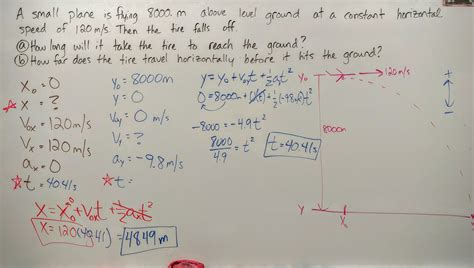 A small plane is flying 8000. m above level ground at a constant horizontal
speed of 120 m/s. Then the tire falls off.
ⓐ How long will it take the tire to reach the ground?
ⓑ How far does the tire travel horizontally before it hits the ground?
X₀ = 0
☆ X = ?
V₀ₓ = 120 m/s
Vₓ = 120 m/s
aₓ = 0
☆ t = 40.41 s
X = X₀ + V₀ₓt + ½aₓt²
X = 120(40.41) = 4849 m
y₀ = 8000 m
y = 0
V₀y = 0 m/s
Vy = ?
ay = -9.8 m/s
☆ t =
y = y₀ + V₀yt + ½at²
0 = 8000m + + ½(-9.8 m/s²)t²
-8000 = -4.9t²
8000/4.9 = t²
t = 40.41 s
Y₀
120 m/s
8000m
Y
X₀
+
-